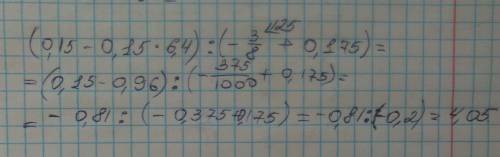 (0,15 - 0,15 · 6,4) : (- 3/8 \125 + 0,175) =
= (0,15 - 0,96) : (- 375/1000 + 0,175) =
= - 0,81 : (- 0,375+0,175) = -0,81 : (-0,2) = 4,05